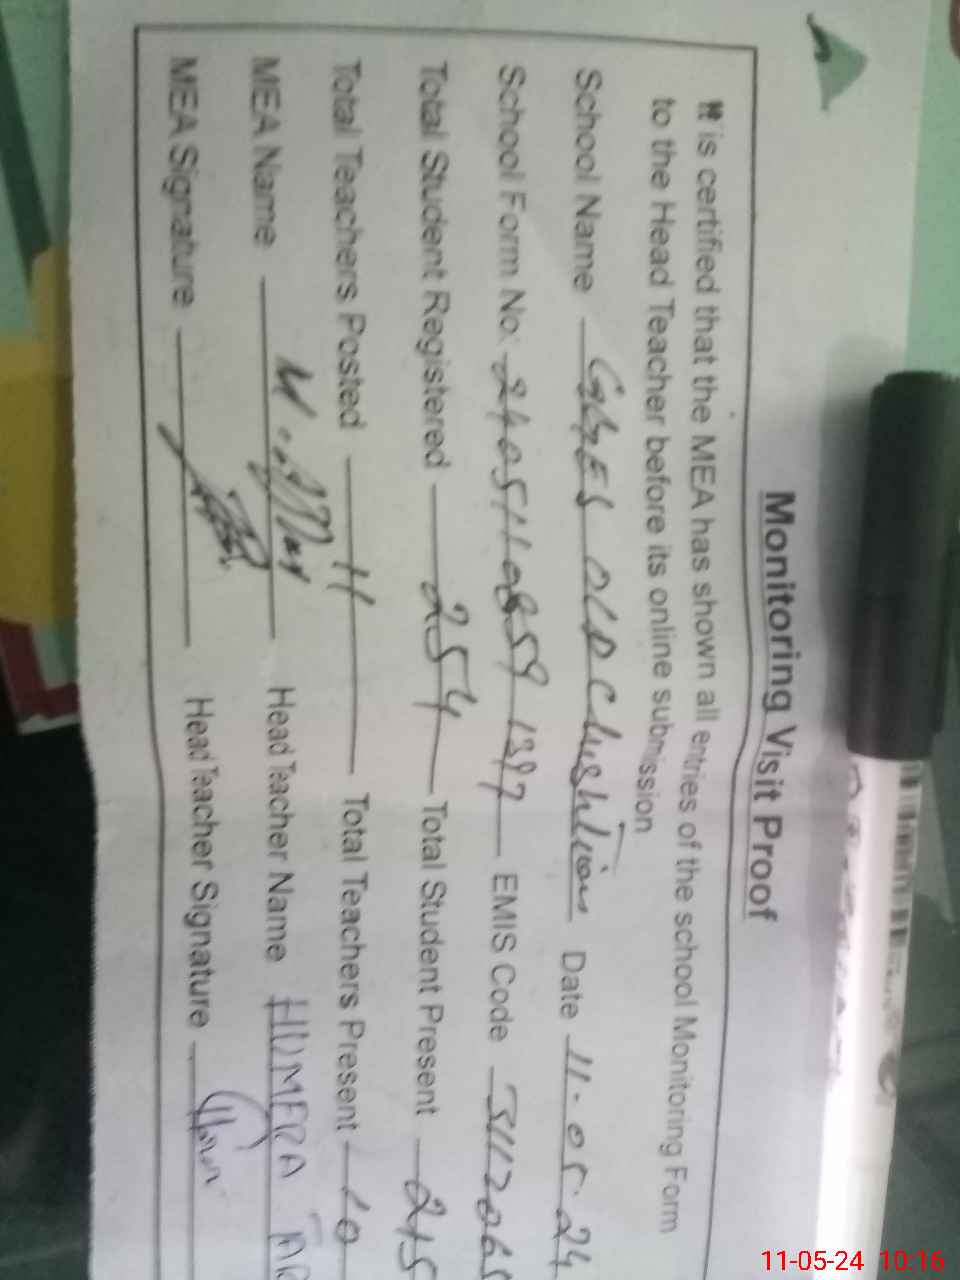 Monitoring Visit Proof
It is certified that the MEA has shown all entries of the school Monitoring Form
to the Head Teacher before its online submission
School Name GGES OLD Chishtian Date 11.05.24
School Form No. EMIS Code
Total Student Registered 254 Total Student Present 215
Total Teachers Posted 11 Total Teachers Present 10
MEA Name M. Head Teacher Name HUMERA
MEA Signature Head Teacher Signature
11-05-24 10:16